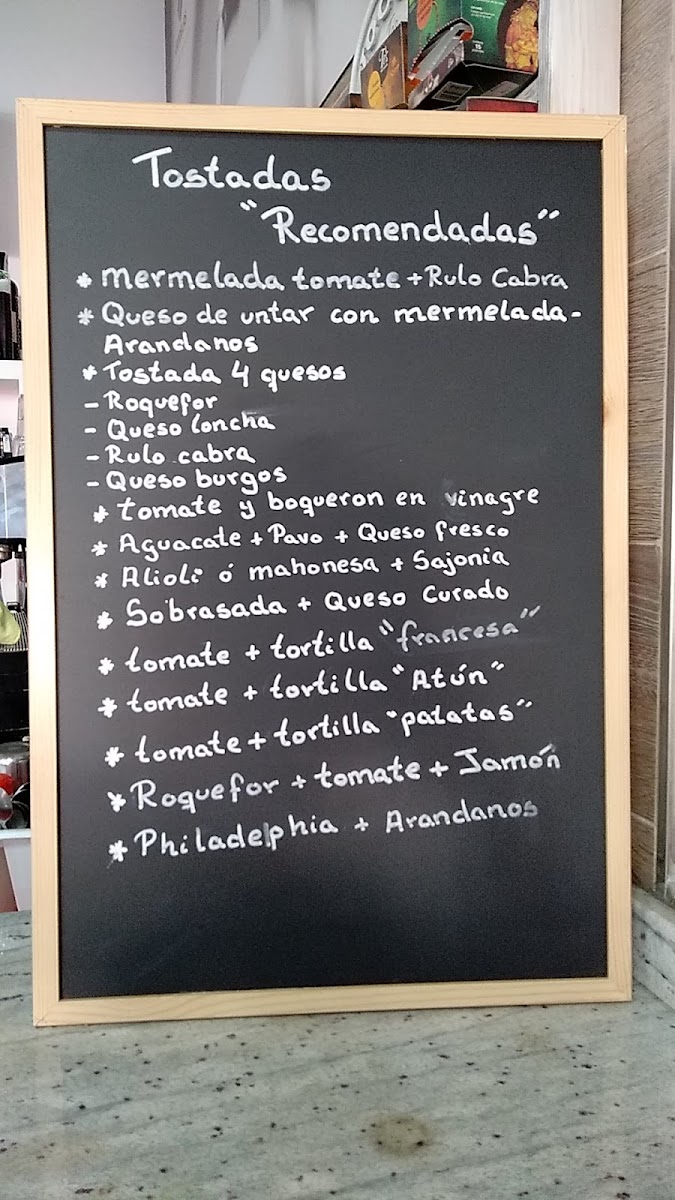 Tostadas
"Recomendadas"
* mermelada tomate + Rulo Cabra
* Queso de untar con mermelada-
Arandanos
* Tostada 4 quesos
- Roquefor
- Queso loncha
- Rulo cabra
- Queso burgos
* tomate y boqueron en vinagre
* Aguacate + Pavo + Queso fresco
* Alioli ó mahonesa + Sajonia
* Sobrasada + Queso Curado
* tomate + tortilla "francesa"
* tomate + tortilla "Atún"
* tomate + tortilla "patatas"
* Roquefor + tomate + Jamón
* Philadelphia + Arandanos